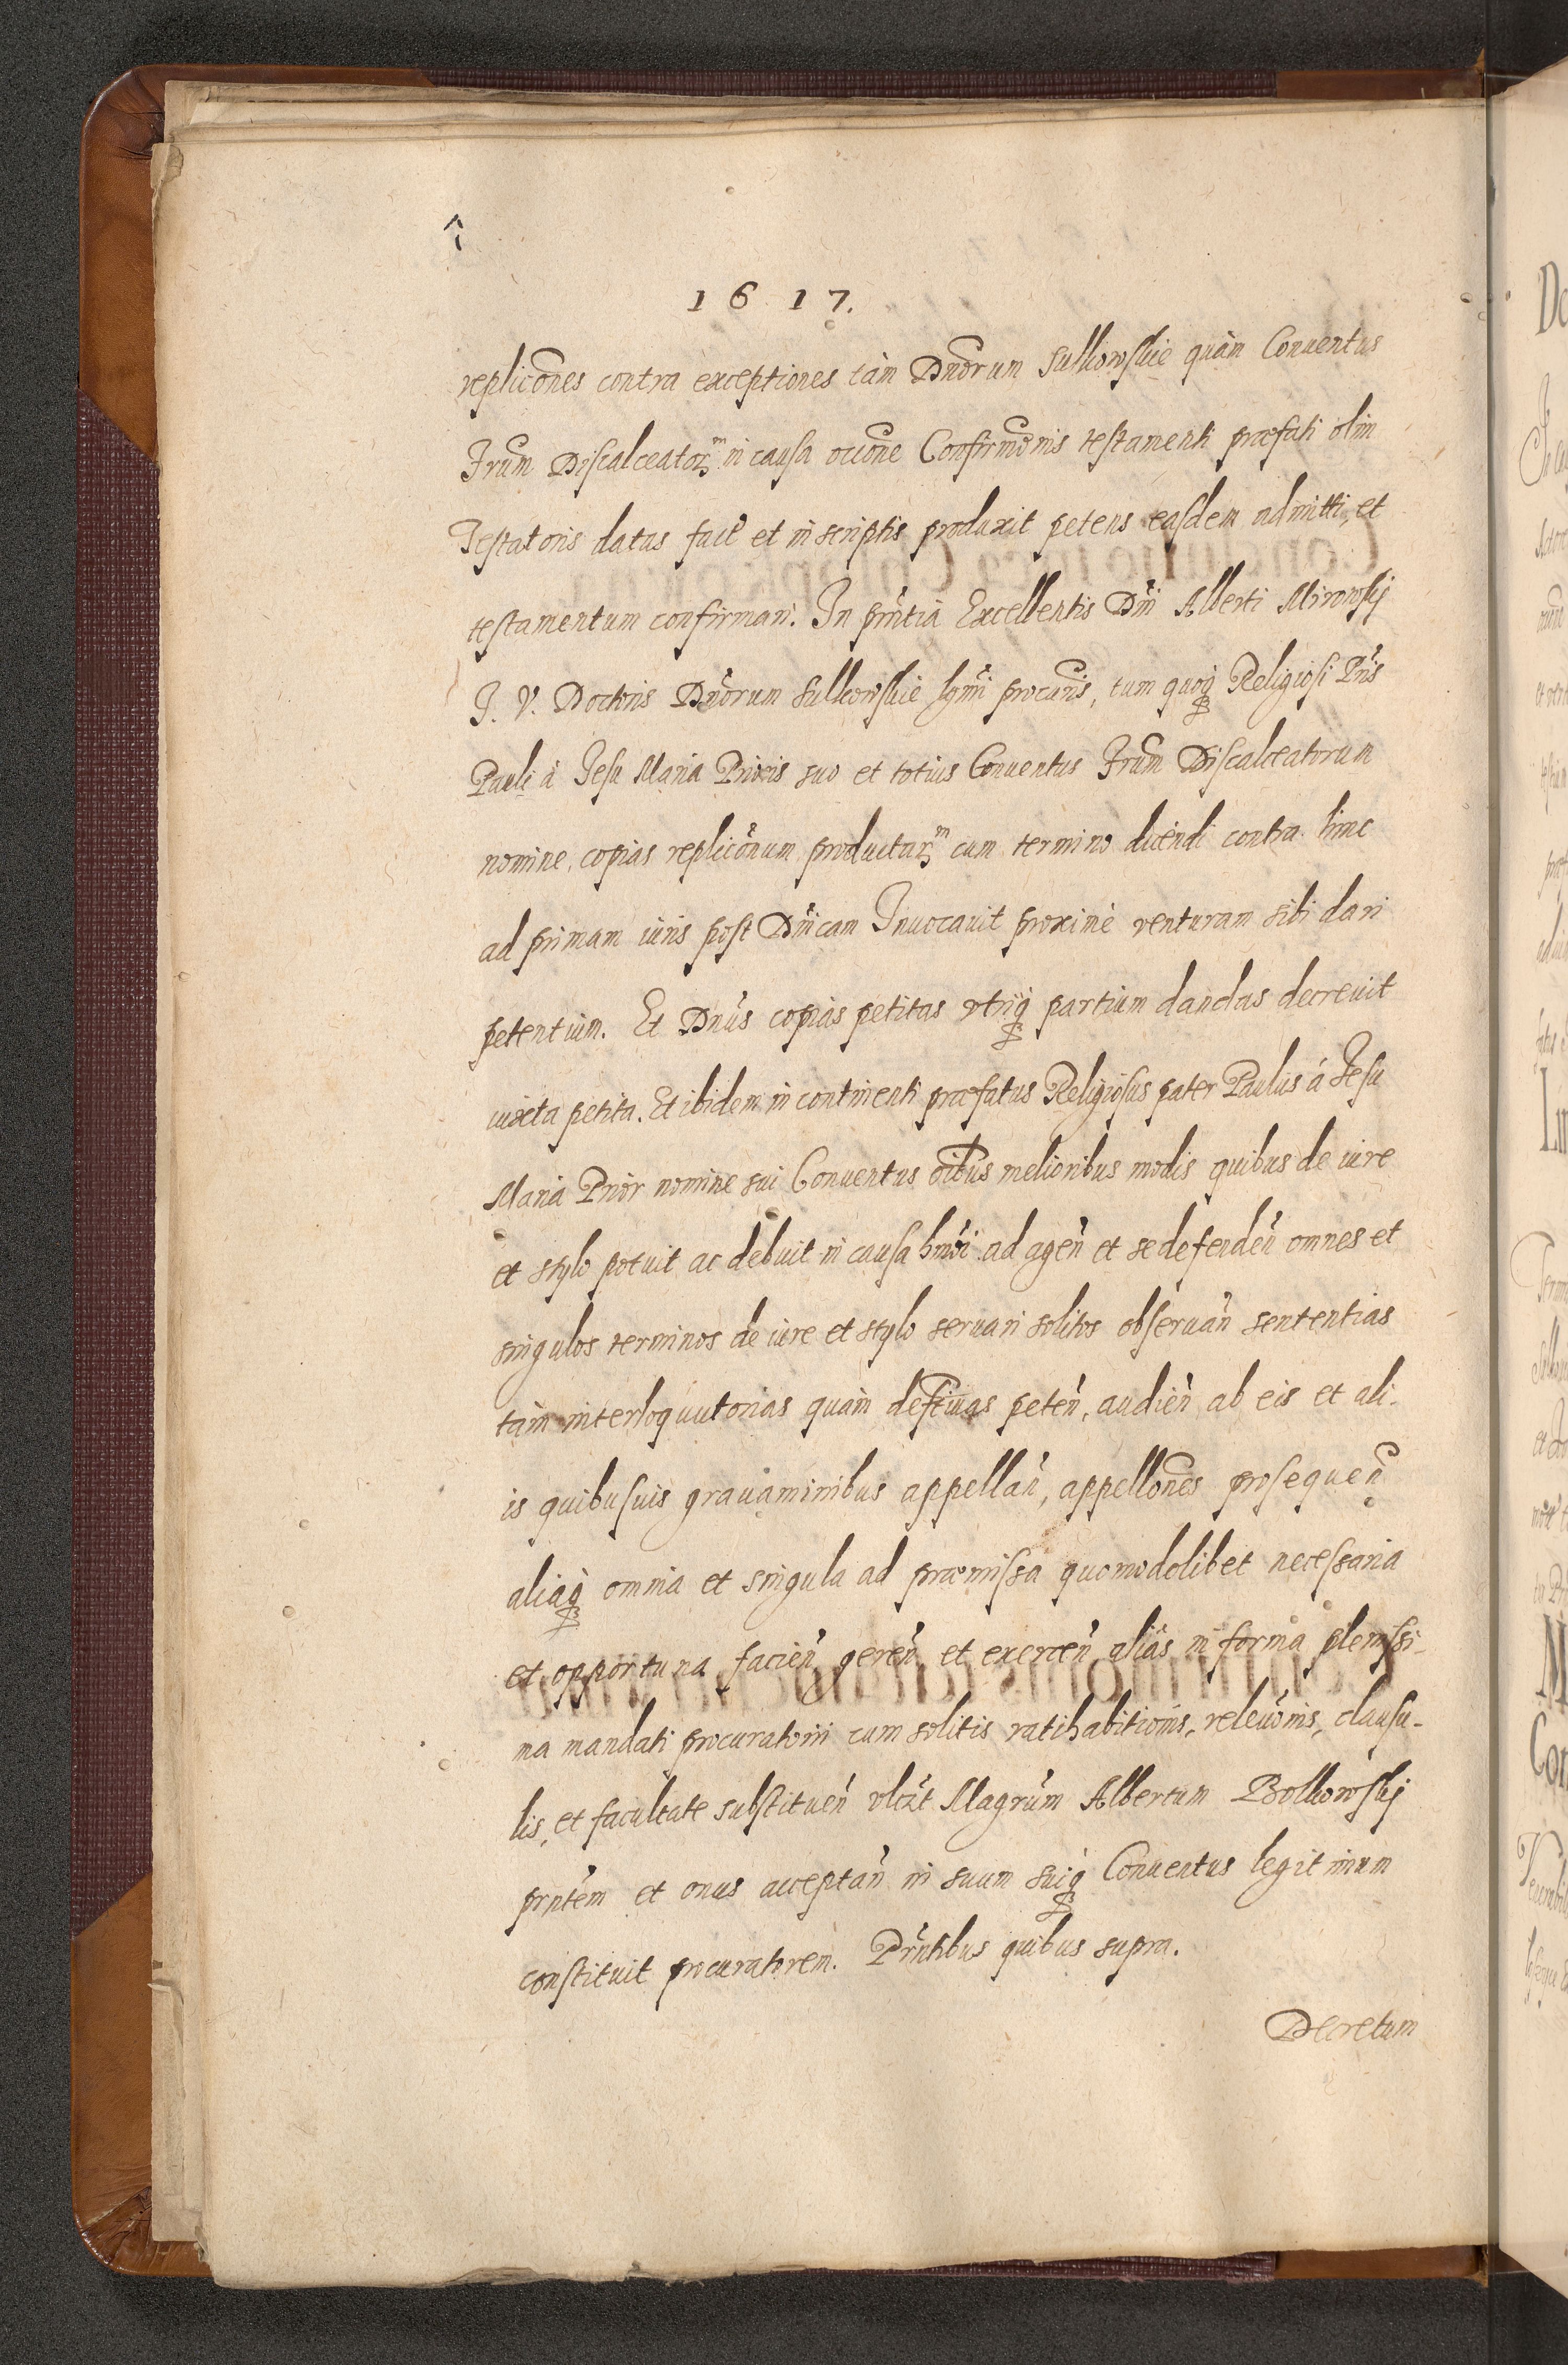 1617.
replicões contra exceptiones tàm Dnõrum Sulkowskie quàm Conuentus
Frũm Discalceatorum in causa oc̃cone Confirmõnis testamenti præfati olim
Testatoris datas fecit et in scriptis produxit petens easdem admitti, et
testamentum confirmari. In pñtia Excellentis Dñi Alberti Mirowskj
J. V. Doctoris Dnõrum Sulkowskie lgmi procuris, tum quoq Religiosi Pris
Pauli à Jesu Maria Prioris suo et totius Conuentus Frũm Discalceatorum
nomine, copias replicõnum productarum cum termino dicendi contra hinc
ad primam iuris post Dnicam Inuocauit proximè venturam sibi dari
petentium. Et Dnũs copias petitas vtriq partium dandas decreuit
iuxta petita. Et ibidem in continenti præfatus Religiosus pater Paulus á Jesu
Maria Prior nomine sui Conuentus oĩbus melioribus modis quibus de iure
et stylo potuit ac debuit in causa hmõi ad ageñ et se defendeñ omnes et
singulos terminos de iure et stylo seruari solitos obseruañ sententias
tàm interloquutorias quàm deftiuas peteñ, audieñ ab eis et ali-
is quibusuis grauaminibus appellañ, appellões prosequeñ
aliaq omnia et singula ad præmissa quomodolibet necessaria
et opportuna facieñ gereñ et exerceñ aliàs in forma plenissi-
ma mandati procuratorii cum solitis ratihabitionis, releuõnis, clausu-
lis, et facultate substitueñ vlczt Magrũm Albertum Bolkowskj
prñtem et onus acceptañ in suum suiq Conuentus legitimum
constituit procuratorem. Prñtibus quibus supra.
Decretum